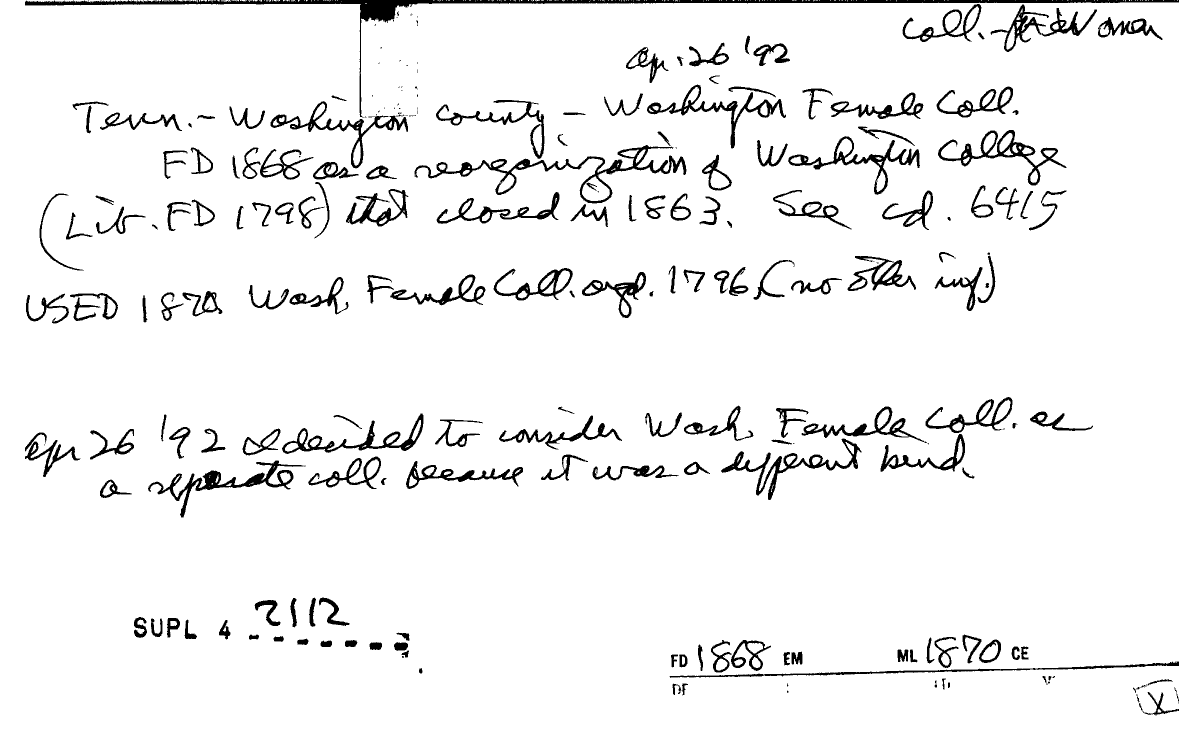 Coll. - Women
Apr. 26 '92
Tenn. - Washington County - Washington Female Coll.
FD 1868 as a reorganization of Washington College
(Lib. FD 1798) that closed in 1863. See cd. 6415
USED 1870 Wash. Female Coll. orgd. 1796 (no other inf.)
Apr 26 '92 I decided to consider Wash. Female Coll. as
a separate coll. because it was a different kind.
SUPL 4 2112
FD 1868 EM ML 1870 CE
X